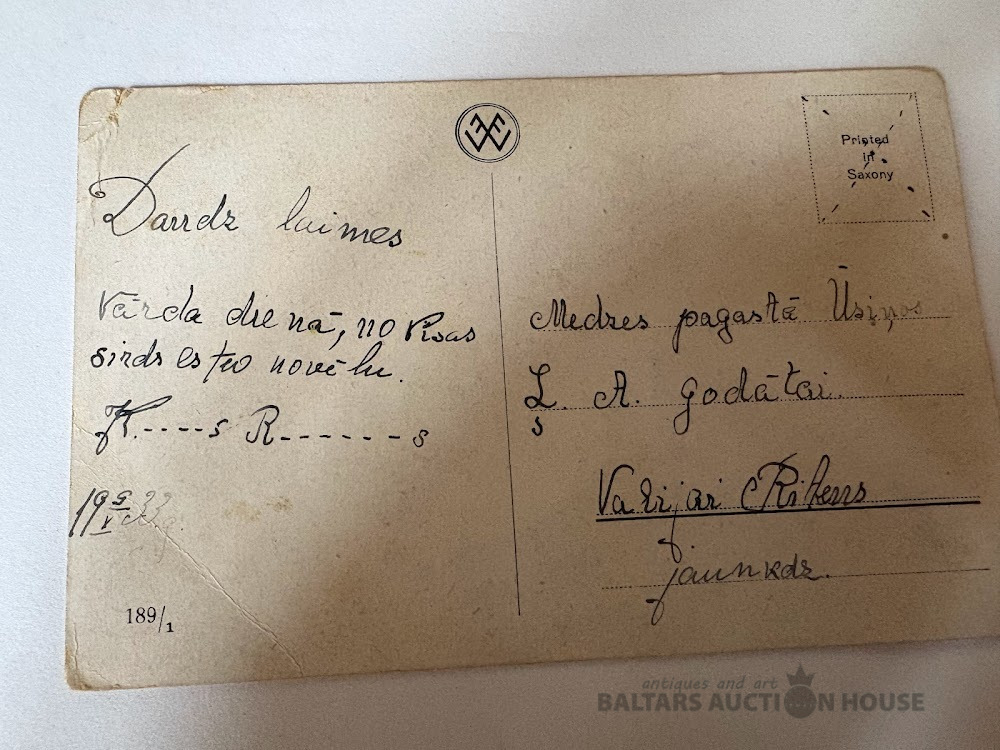 Printed
in
Saxony
Daudz laimes
Vārda dienā, no visas
sirds es tev novēlu.
K.----s R------s
19 9/V 33 g.
189/1
Medzes pagastā Ūsiņos
Ļ. A. godātai
s
jaunkdz.
antiques and art
BALTARS AUCTION HOUSE